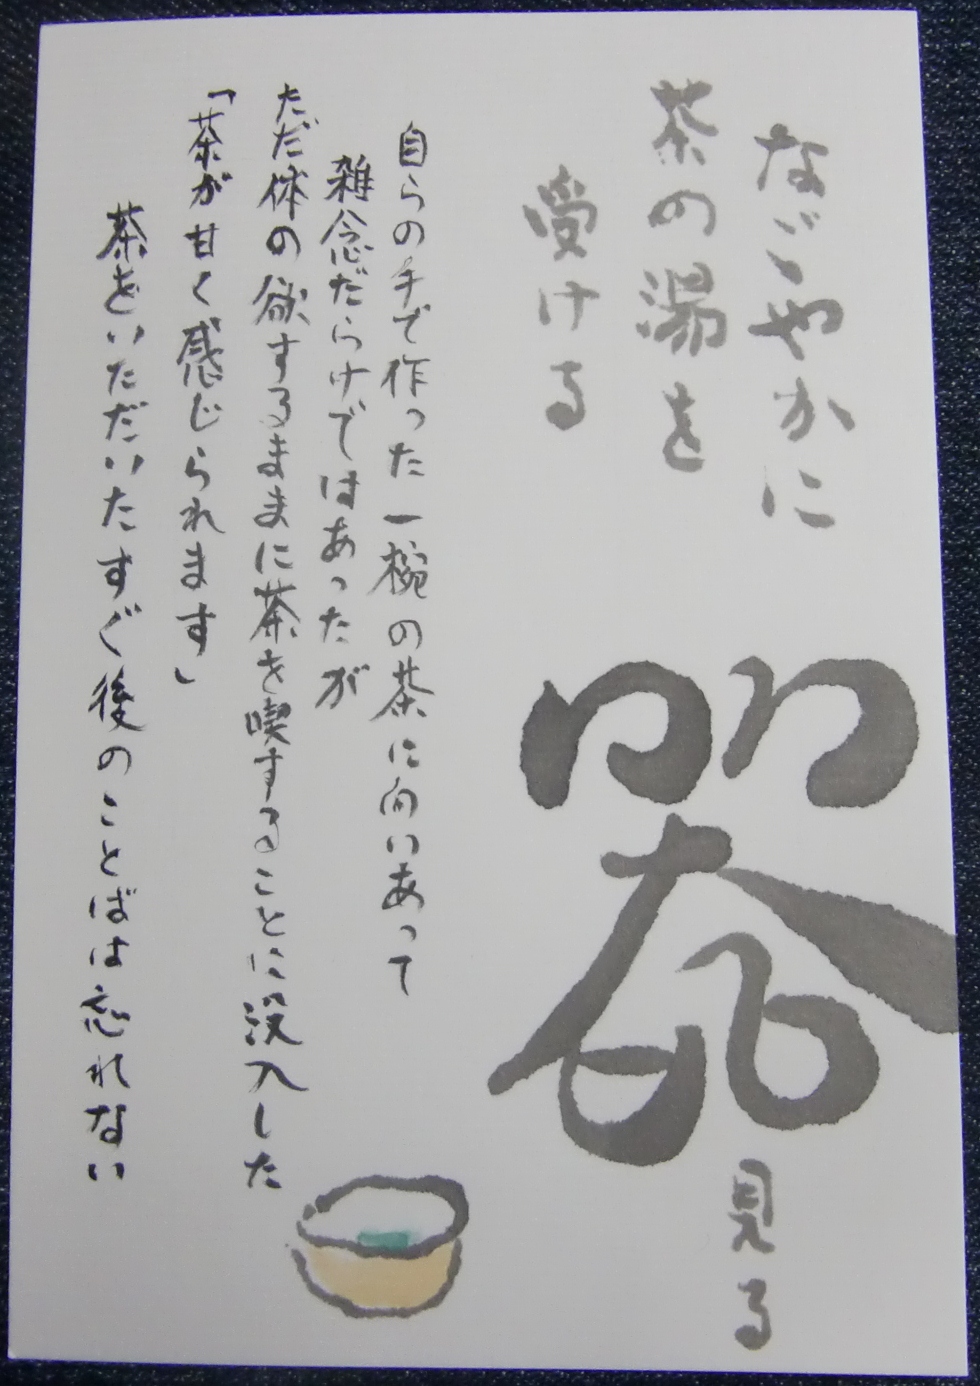 なごやかに
茶の湯を
受ける
器
見る
自らの手で作った一椀の茶に向いあって
雑念だらけではあったが
ただ体の欲するままに茶を喫することに没入した
「茶が甘く感じられます」
茶をいただいたすぐ後のことばは忘れない